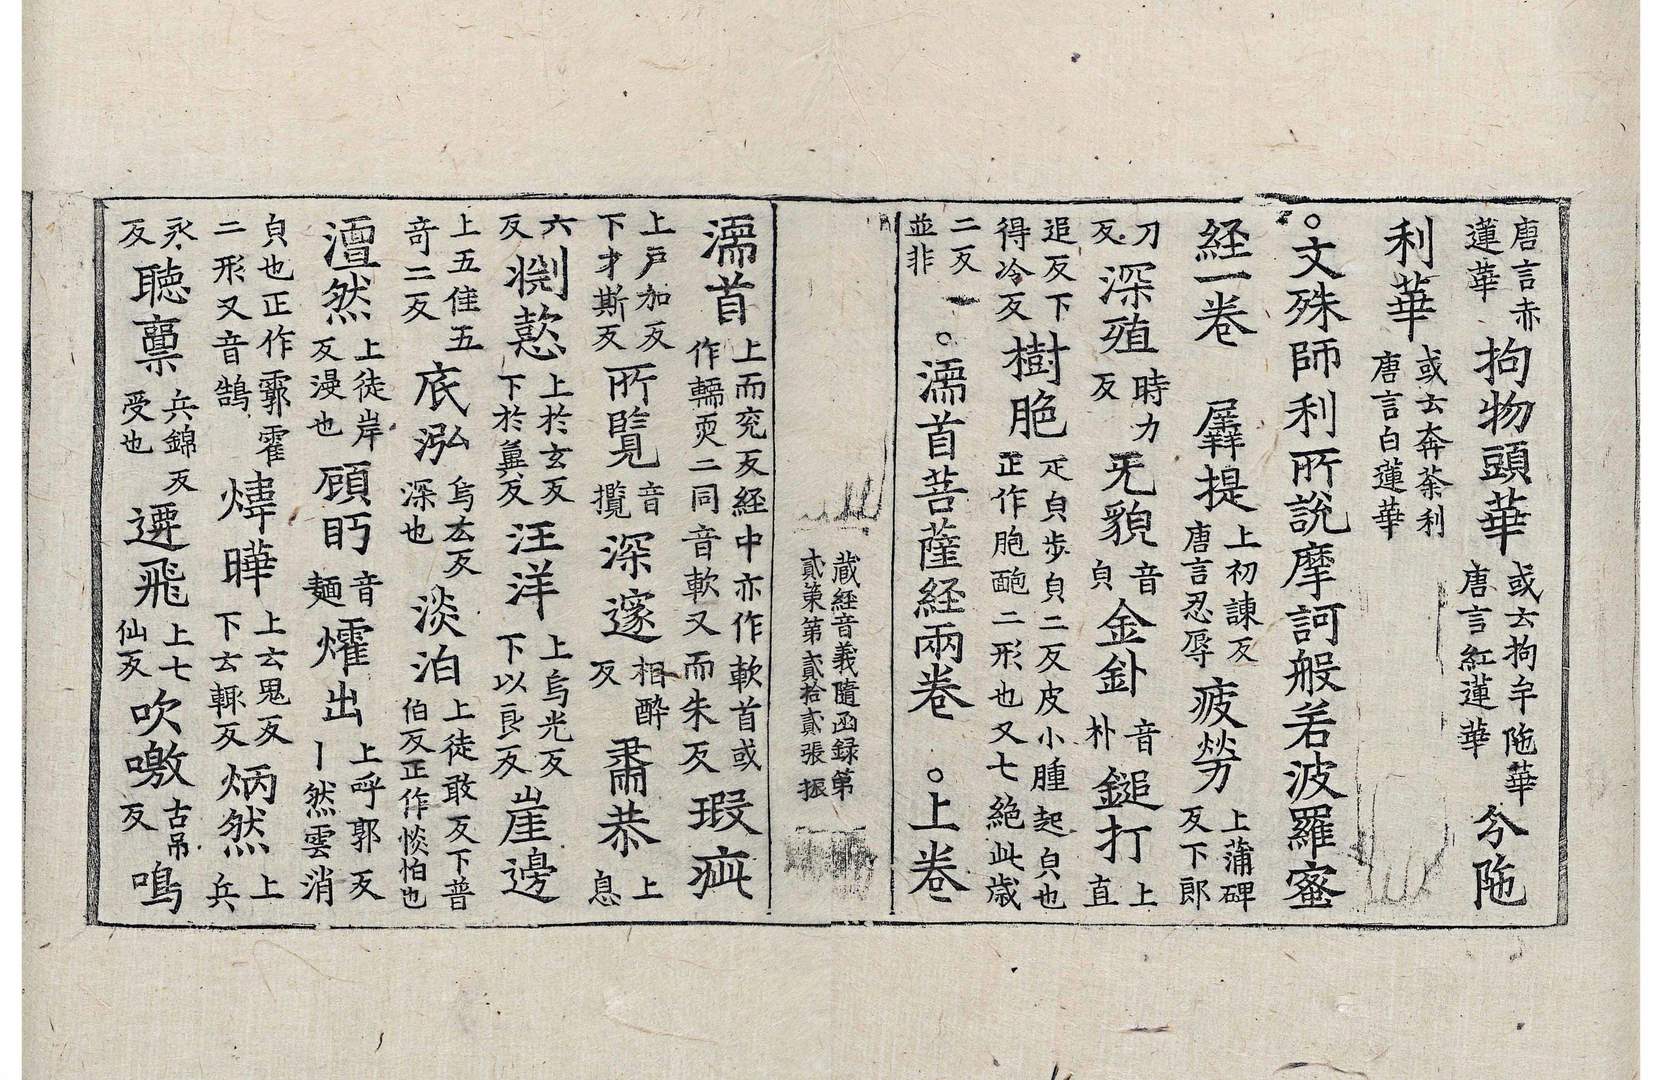 唐言赤蓮華拘物頭華或云拘牟陁華唐言紅蓮華分陁
利華或云奔荼利唐言白蓮華
○文殊師利所說摩訶般若波羅蜜
経一卷 羼提上初諫反唐言忍辱疲勞上蒲碑反下郎
刀反深殖時力反旡貌音皃金釙音朴鎚打上直
追反下得冷反樹脃疋皃步皃二反皮小腫起皃也正作胞皰二形也又七絕此歳
二反並非 ○濡首菩薩経兩卷 ○上卷
蔵経音義隨函録第
貳筞第貳拾貳張 振
濡首上而兖反経中亦作軟首或作轜㚵二同音軟又而朱反瑕疵
上戸加反下才斯反所覽音攬深邃相醉反肅恭上息
六反 慙上於玄反下於兾反汪洋上烏光反下以良反崖邊
上五佳五竒二反底泓烏玄反深也淡泊上徒敢反下普伯反正作惔怕也
澶然上徒岸反漫也顧眄音麵㸌出上呼郭反丨然雲消
皃也正作霩霍二形又音鵠煒曄上云鬼反下云輒反炳然上兵
永反聴禀兵錦反受也䙴飛上七仙反吹噭古吊反鳴